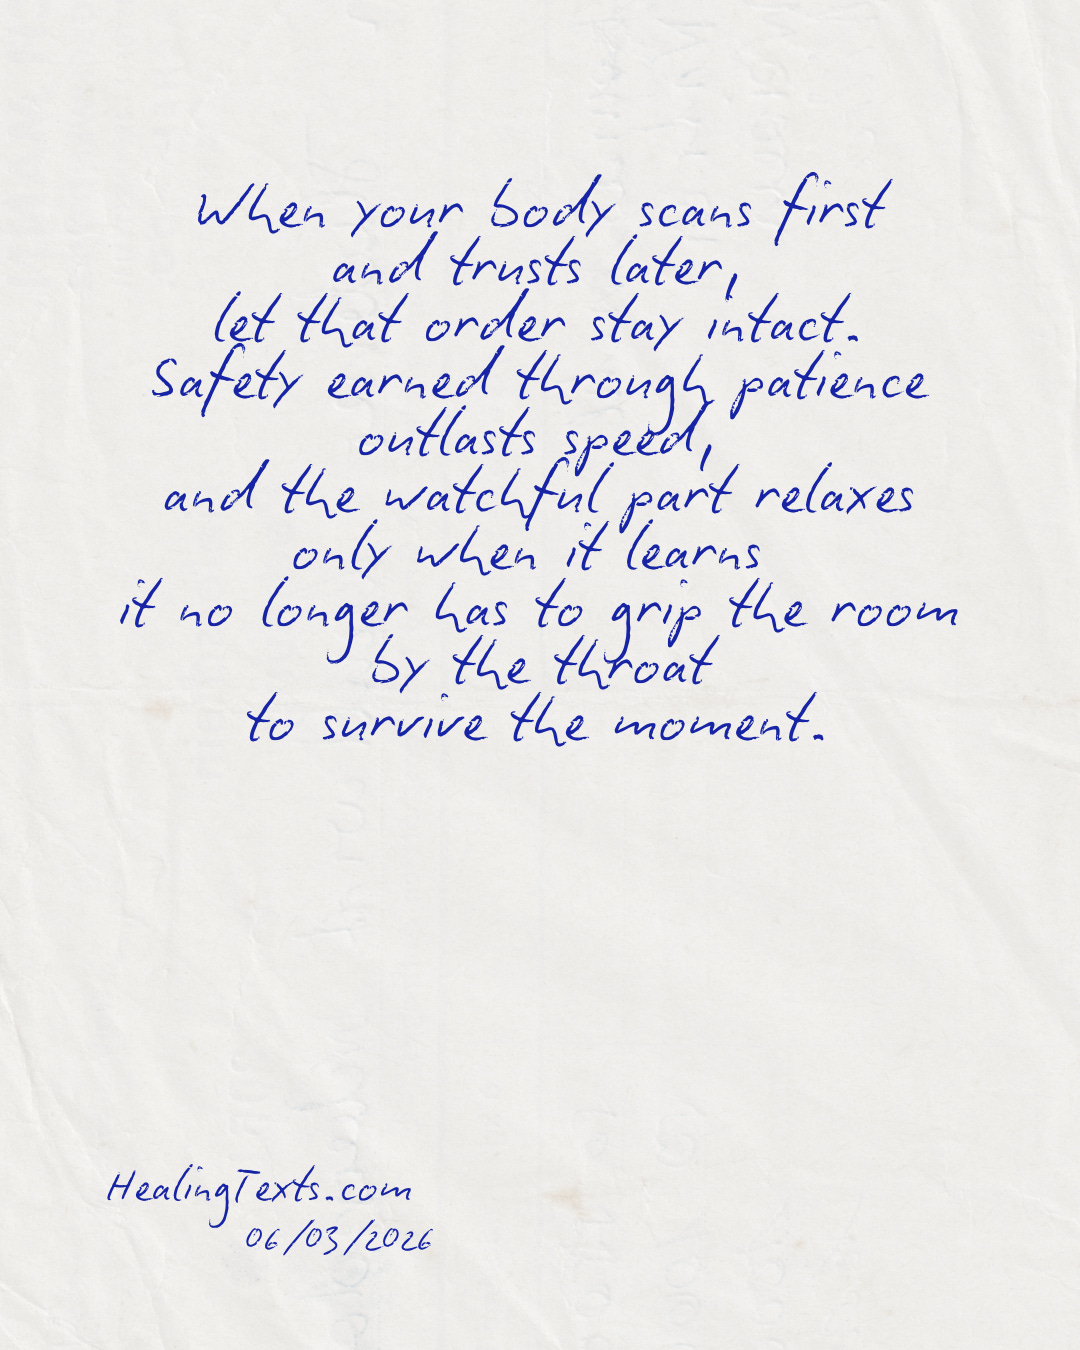 When your body scans first
and trusts later,
let that order stay intact.
Safety earned through patience
outlasts speed,
and the watchful part relaxes
only when it learns
it no longer has to grip the room
by the throat
to survive the moment.
HealingTexts.com
06/03/2026